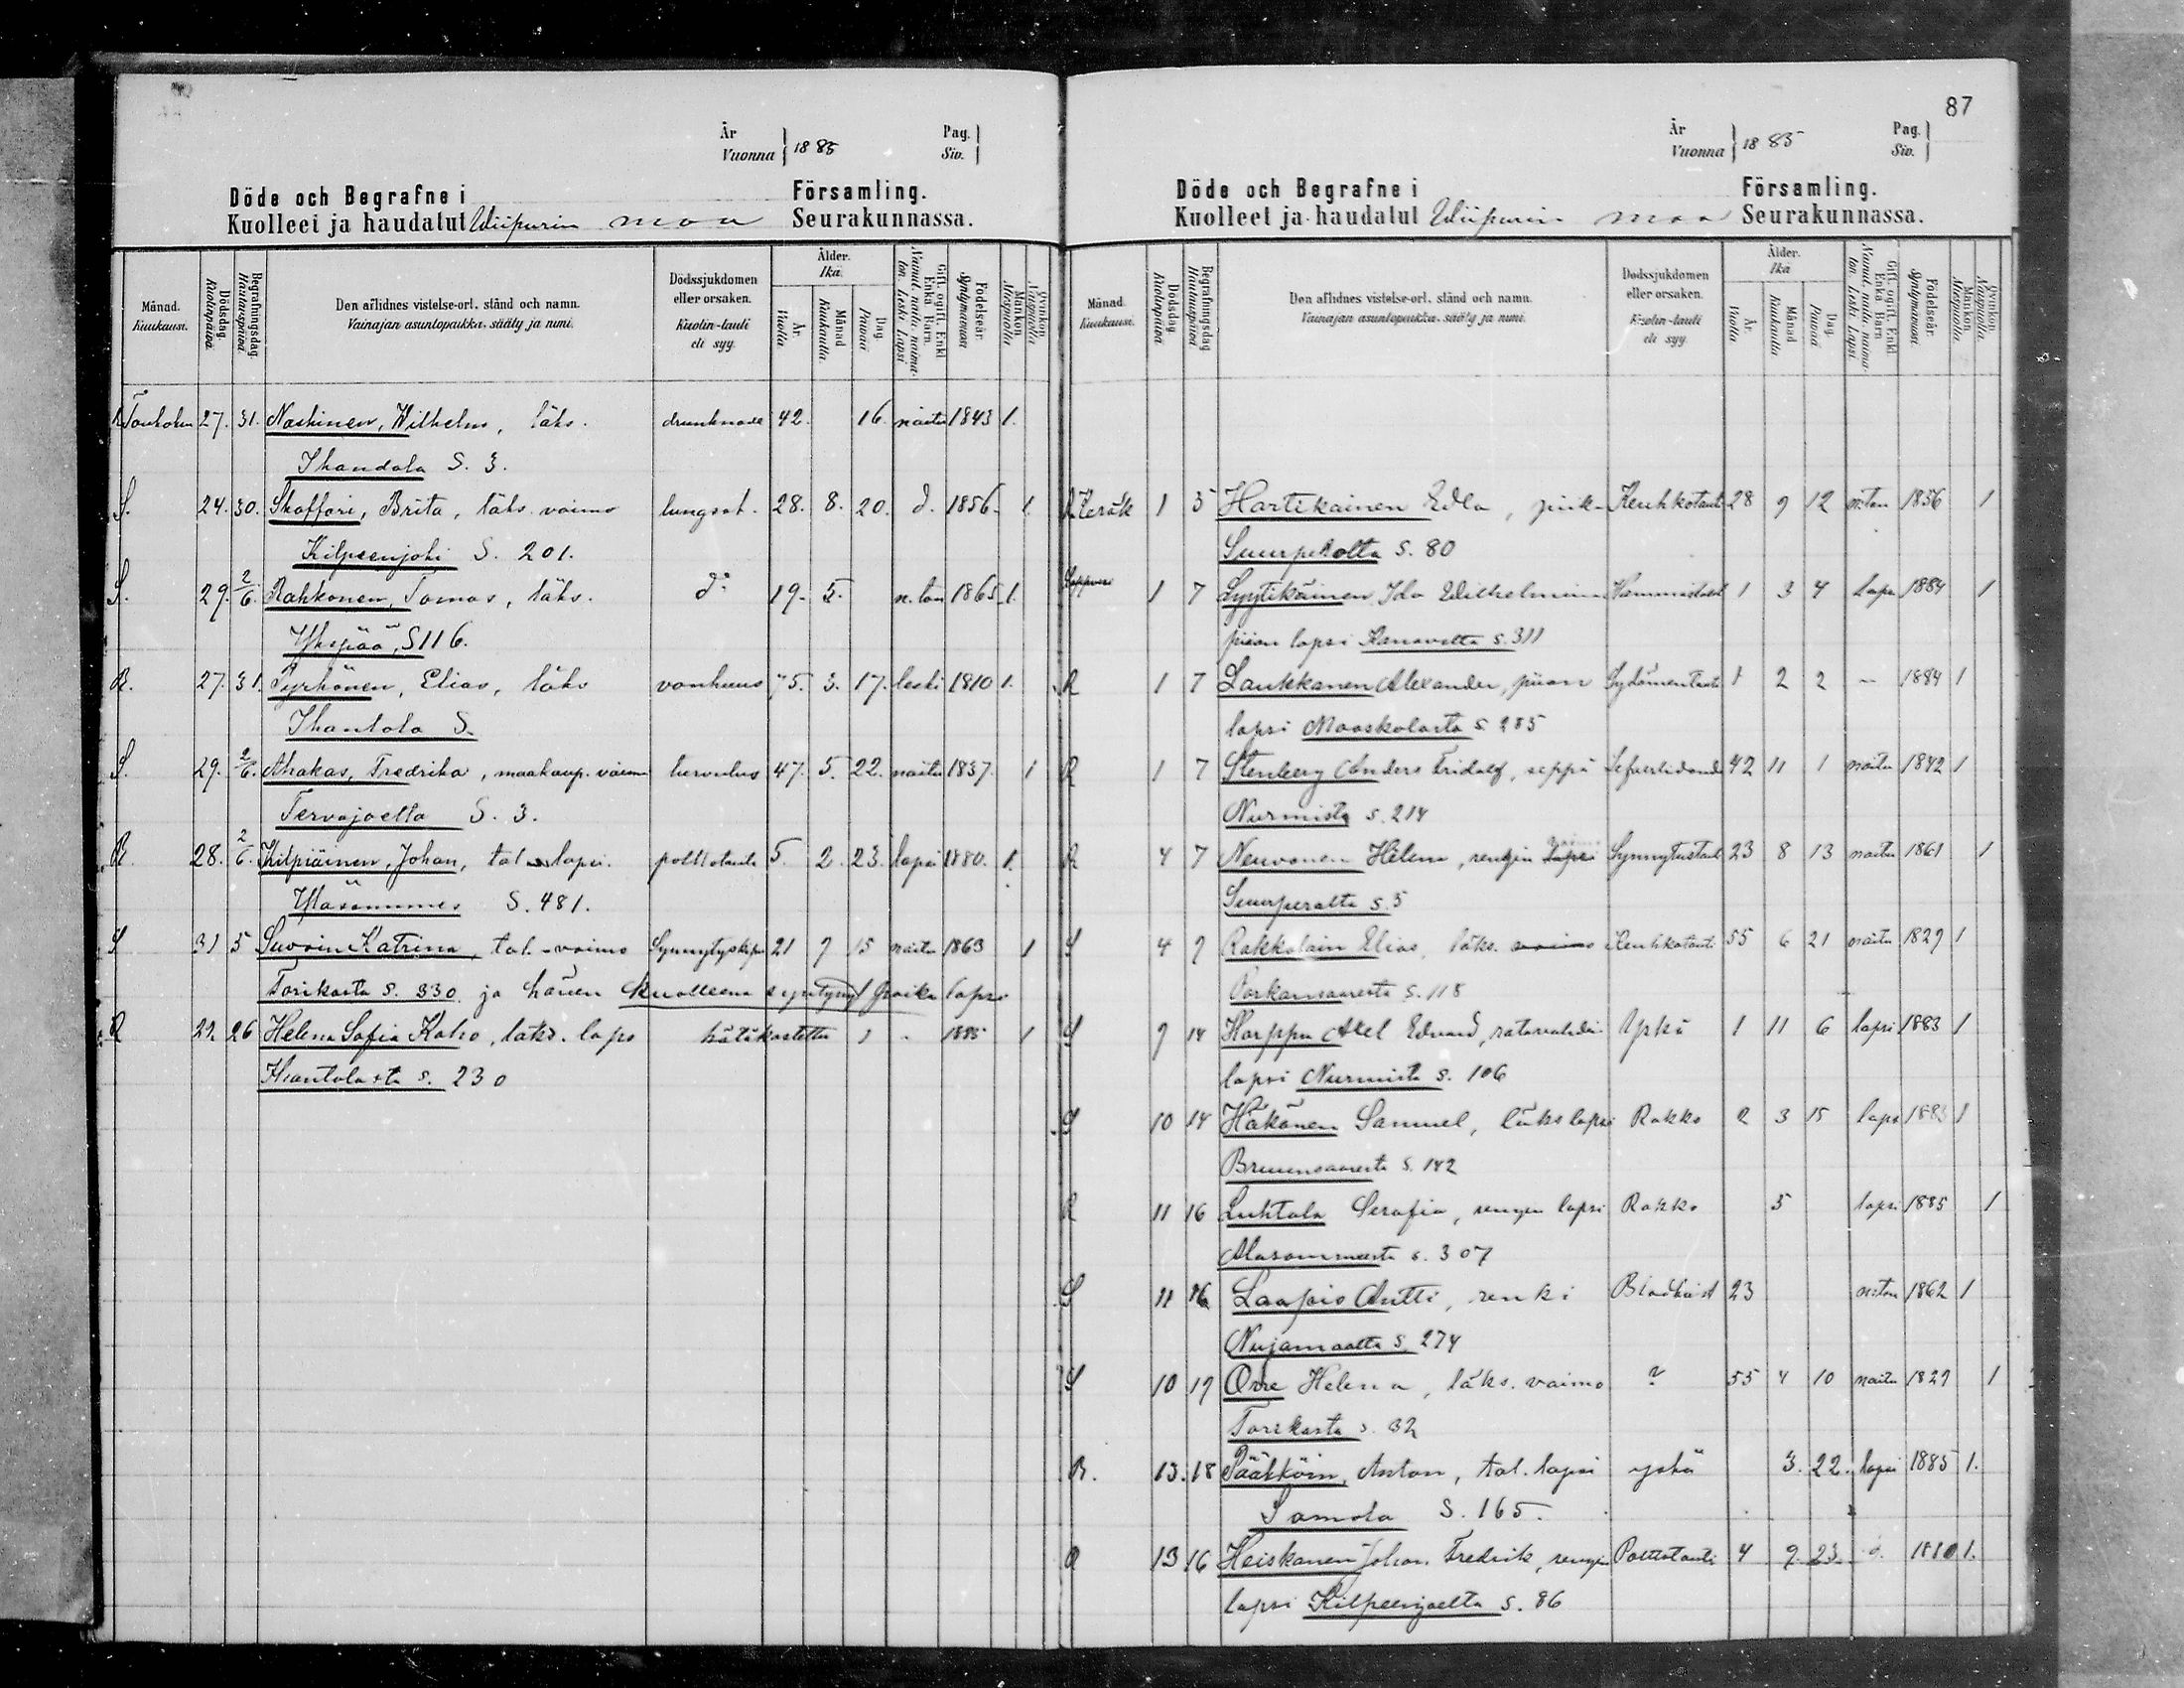 År
Vuonna } 1885
Pag.
Siv. }
Döde och Begrafne i Församling.
Kuolleet ja haudatut Wiipurin maa Seurakunnassa.
Månad. Kuukausi.
Dödsdag. Kuolinpäivä.
Begrafningsdag Hautauspäivä.
Den aflidnes vistelse-ort, stånd och namn.
Vainajan asuntopaikka, sääty ja nimi.
Dödssjukdomen eller orsaken.
Kuolin-tauti eli syy.
Ålder. Ikä.
År Vuotta
Månad Kuukautta
Dag. Päivää
Gift, ogift, Enkl. Enka, Barn.
Nainut, naitu, naimaton, Leski, Lapsi.
Födelseår. Syntymävuosi
Mankön. Miespuolia
Qvinkön. Naispuolia
R Toukokuu 27. 31. Naskinen, Wilhelm, läks. drunknade 42. 16. naitu 1843 1.
Ihandola S. 3.
S. 24. 30. Skaffari, Brita, läks. vaimo lungsot. 28. 8. 20. d. 1856. 1.
Kilpeenjoki S. 201.
S. 29. 2/6. Rahkonen, Tomas, läks. d:o 19. 5. n. ton 1865 1.
Ykspää, S 116.
R. 27. 31. Pyrhönen, Elias, läks vanhuus 75. 3. 17. leski 1810 1.
Ihantola S.
S. 29. 2/6. Ahakas, Fredrika, maakaup. vaimo 47. 5. 22. naitu 1837. 1
Tervajoelta S. 3.
R. 28. 2/6. Kilpiäinen, Johan, tal. lapsi. polttotauti 5. 2. 23. lapsi 1880. 1.
Yläsommes S. 481.
S 31 5 Suvoin Katrina, tal.-vaimo 21 9 15 naitu 1863 1
Torikasta S. 330. ja hänen kuolleena syntynyt poika lapsi
R 29. 26 Helena Sofia Koho, läks. laps hätäkastettu 1 1885 1
Hiantolasta s. 230
87
År
Vuonna } 1885
Pag.
Siv. }
Döde och Begrafne i Församling.
Kuolleet ja haudatut Wiipurin maa Seurakunnassa.
Månad. Kuukausi.
Dödsdag. Kuolinpäivä.
Begrafningsdag Hautauspäivä.
Den aflidnes vistelse-ort, stånd och namn.
Vainajan asuntopaikka, sääty ja nimi.
Dödssjukdomen eller orsaken.
Kuolin-tauti eli syy.
Ålder. Ikä
År. Vuotta
Månad Kuukautta
Dag. Päivää
Gift, ogift, Enkl. Enka, Barn
Nainut, naitu, naimaton, Leski, Lapsi.
Födelseår. Syntymävuosi.
Mankön. Miespuolia.
Qvinkön. Naispuolia.
R Kesäk 1 5 Hartikainen Edla, piika Keuhkotauti 28 9 12 n:ton 1856 1
Suurperolta S. 80
1 7 Lyytikäinen Ida Wilhelmina 1 3 4 laps 1884 1
piian lapsi Kanavalta s. 311
R 1 7 Laukkanen Alexander, piian Sydämentauti 1 2 2 — 1884 1
lapsi Maaskolasta s. 285
R 1 7 Stenberg Anders Fridolf, seppä Lefverlidande 42 11 1 naitu 1842 1
Nurmista s. 214
R 4 7 Neuvonen Helena, rengin lapsi vaimo Synnytystauti 23 8 13 naitu 1861 1
Suurperalta s. 5
S 4 9 Rakkolain Elias, läks. vaimo Keuhkotauti 55 6 21 naitu 1829 1
Porkansaaresta s. 118
S 9 14 Harppu Axel Edvard, ratavahdin Yskä 1 11 6 lapsi 1883 1
lapsi Nurmista s. 106
S 10 14 Häkänen Samuel, läks lapsi Rokko 2 3 15 laps 1883 1
Bruunsaaresta s. 142
R 11 16 Luhtala Serafia, rengin lapsi Rokko 5 lapsi 1885 1
Alasommeesta s. 307
S 11 16 Laapio Antti, renki 23 n:ton 1862 1
Nuijamaalta s. 274
S 10 19 Orre Helena, läks. vaimo ? 55 4 10 naitu 1829 1
Torikasta s. 32
R. 13. 18 Päätköin, Anton, tal. lapsi yskä 3. 22. lapsi 1885 1.
Samola S. 165.
R 13 16 Heiskanen Johan Fredrik, rengin Polttotauti 4 9 23 d. 1880 1.
lapsi Kilpeenjoelta s. 86